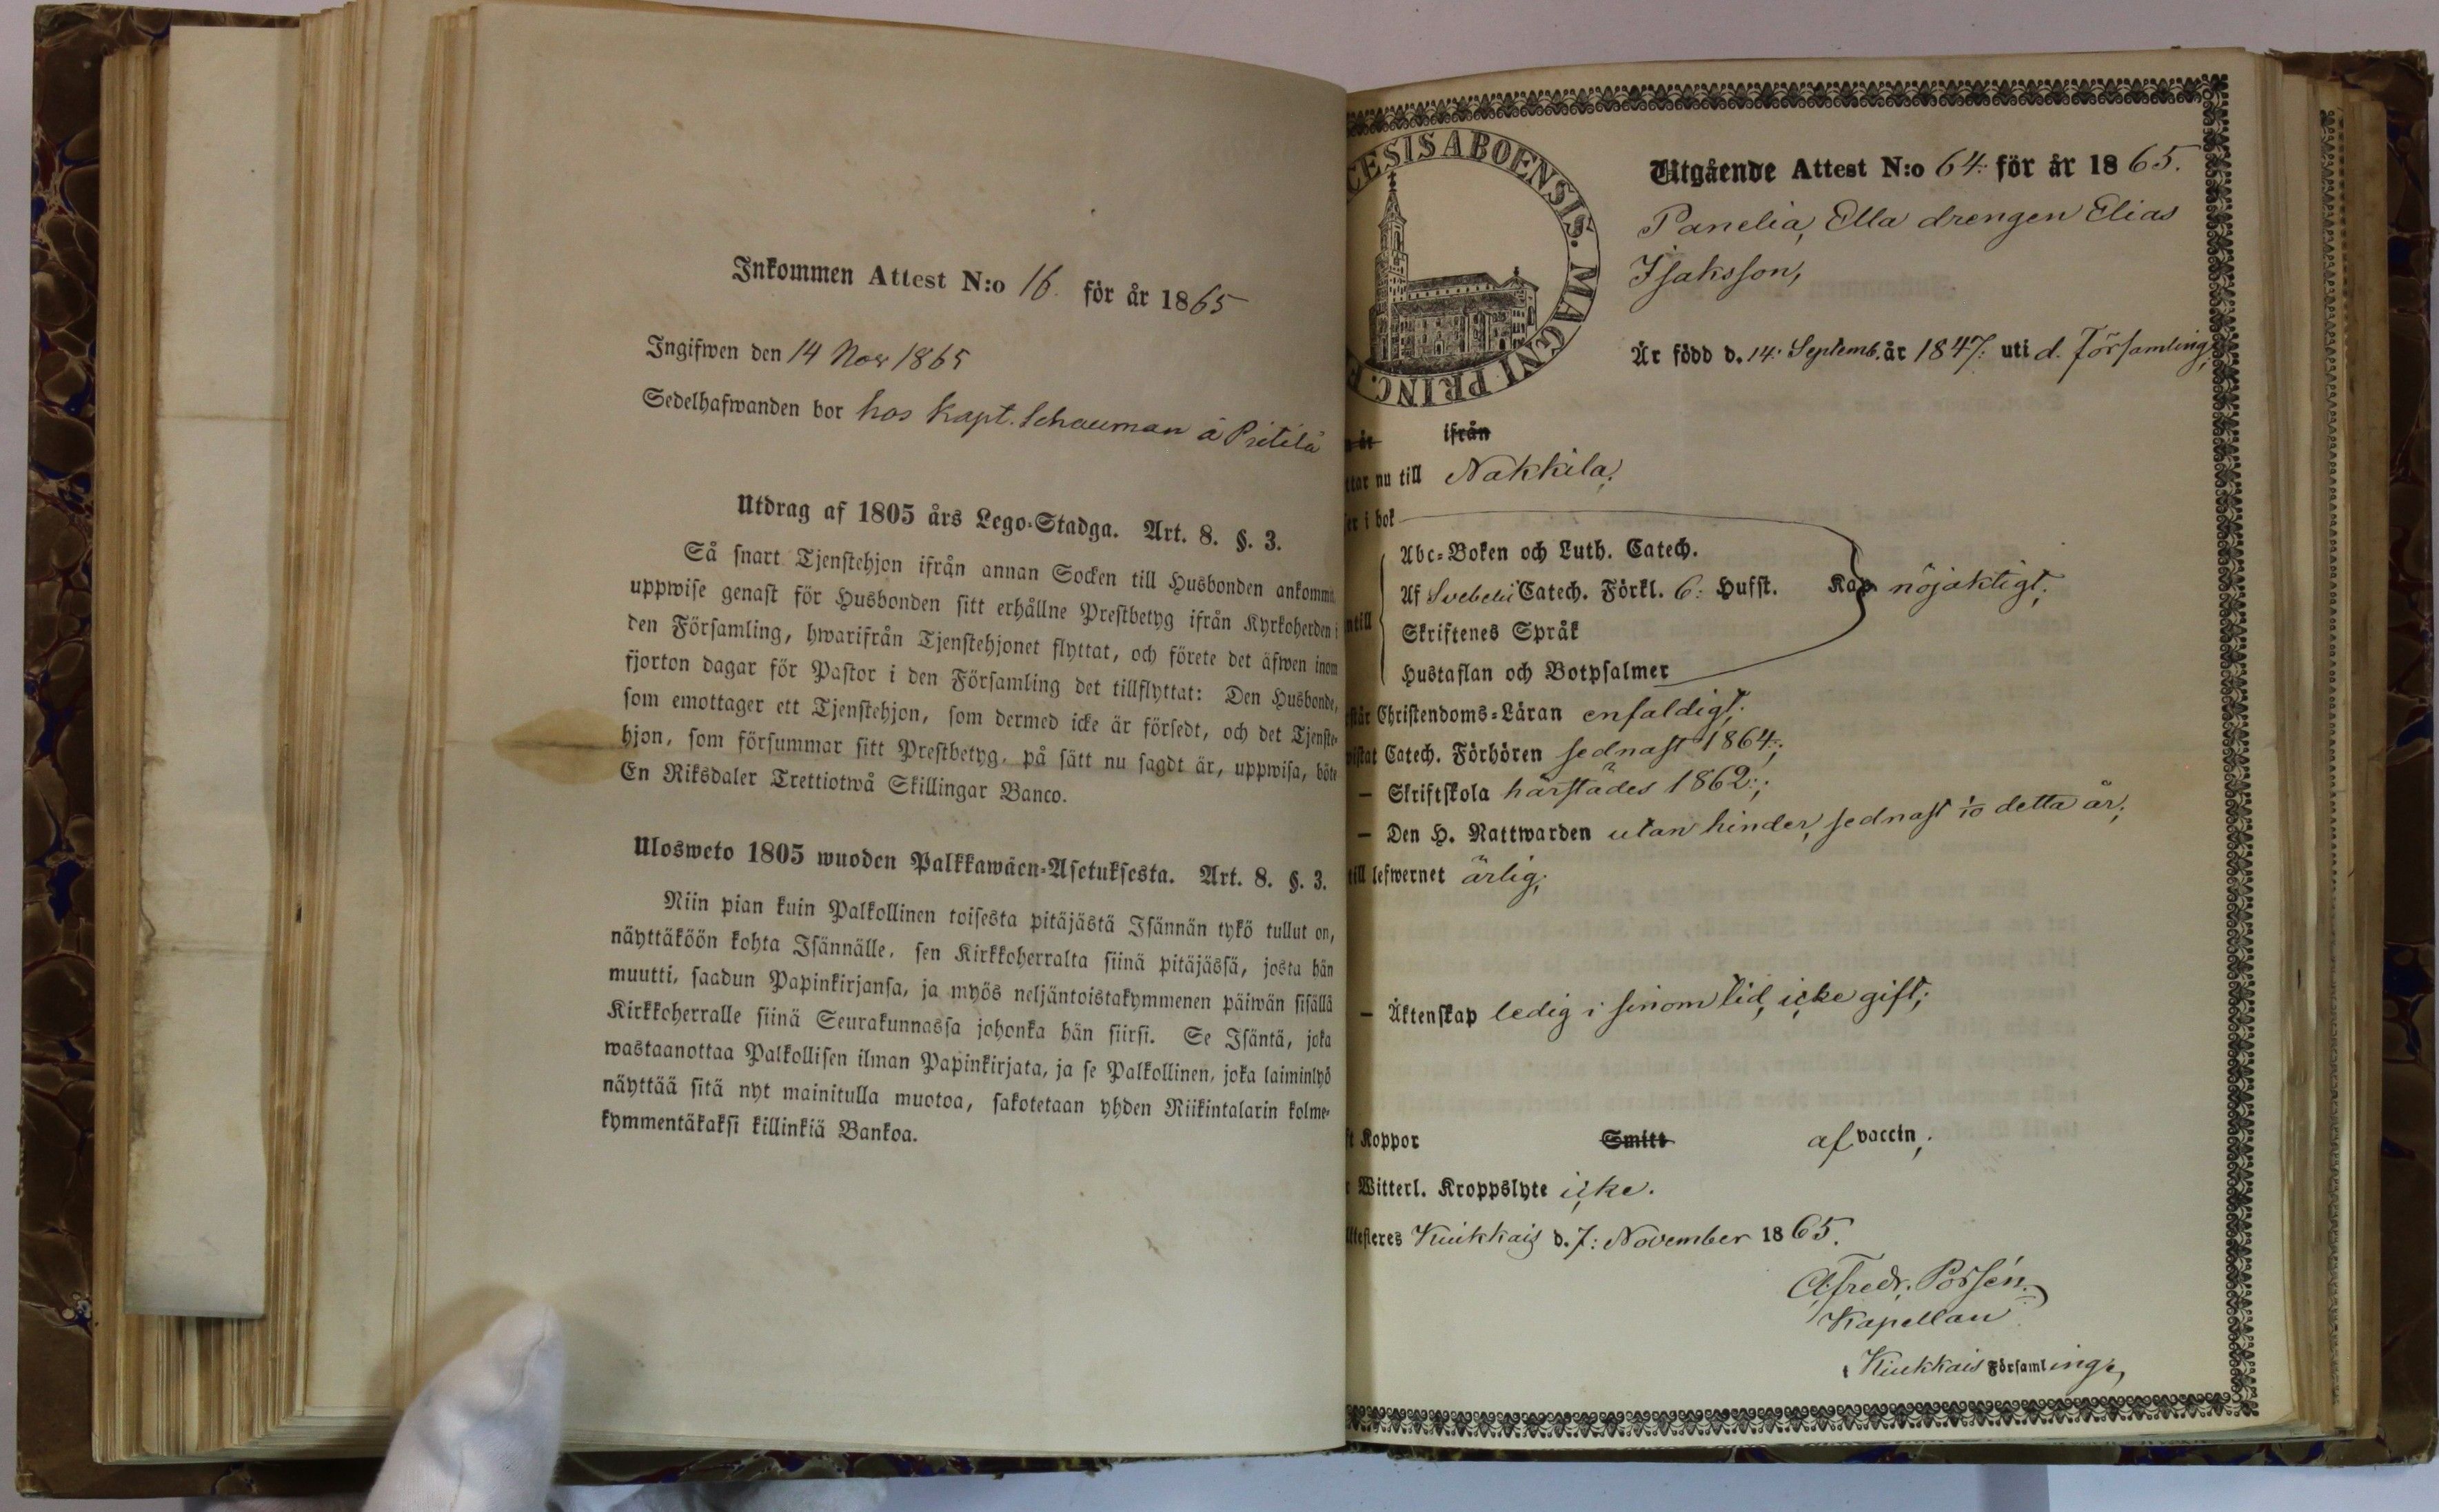 Inkommen Attest N:o 16. för år 1865
Ingifwen den 14 Nov 1865
Sedelhafwanden bor hos Kapt. Schauman å Pritilä
Utdrag af 1805 års Lego-Stadga. Art. 8. §. 3.
Så snart Tjenstehjon ifrån annan Socken till Husbonden ankommit,
uppwise genast för Husbonden sitt erhållne Prestbetyg ifrån Kyrkoherden i
den Församling, hwarifrån Tjenstehjonet flyttat, och förete det äfwen inom
fjorton dagar för Pastor i den Församling det tillflyttat: Den Husbonde,
som emottager ett Tjenstehjon, som dermed icke är försedt, och det Tjenste-
hjon, som försummar sitt Prestbetyg, på sätt nu sagdt är, uppwisa, böte
En Riksdaler Trettiotwå Skillingar Banco.
Ulosweto 1805 wuoden Palkkawäen-Asetuksesta. Art. 8. §. 3.
Niin pian kuin Palkollinen toisesta pitäjästä Isännän tykö tullut on,
näyttäköön kohta Isännälle, sen Kirkkoherralta siinä pitäjässä, josta hän
muutti, saadun Papinkirjansa, ja myös neljäntoistakymmenen päiwän sisällä
Kirkkoherralle siinä Seurakunnassa johonka hän siirsi. Se Isäntä, joka
wastaanottaa Palkollisen ilman Papinkirjata, ja se Palkollinen, joka laiminlyö
näyttää sitä nyt mainitulla muotoa, sakotetaan yhden Riikintalarin kolme-
kymmentäkaksi killinkiä Bankoa.
CESIS ABOENSIS. MAGNI PRINC. F
Utgående Attest N:o 64: för år 1865.
Panelia, Ella drengen Elias
Isaksson,
Är född d. 14. Septemb. år 1847: uti d. Församling;
ifrån
ttar nu till Nakkila;
ser i bok
Abc-Boken och Luth. Catech.
Af Svebelii Catech. Förkl. 6: Hufst. Kap nöjaktigt;
ntill
Skriftenes Språk
Hustaflan och Botpsalmer
rstår Christendoms-Läran enfaldigt;
wistat Catech. Förhören sednast 1864:;
— Skriftskola härstädes 1862:;
— Den H. Nattwarden utan hinder, sednast 1/10 detta år;
till lefwernet ärlig;
— Äktenskap ledig i sinom tid, icke gift;
ft Koppor Smitt af vaccin;
r Witterl. Kroppslyte icke.
Attesteres Kiukkais d. 7: November 1865.
A. Fredr. Porsén.
Kapellan
i Kiukkais Församlinge,